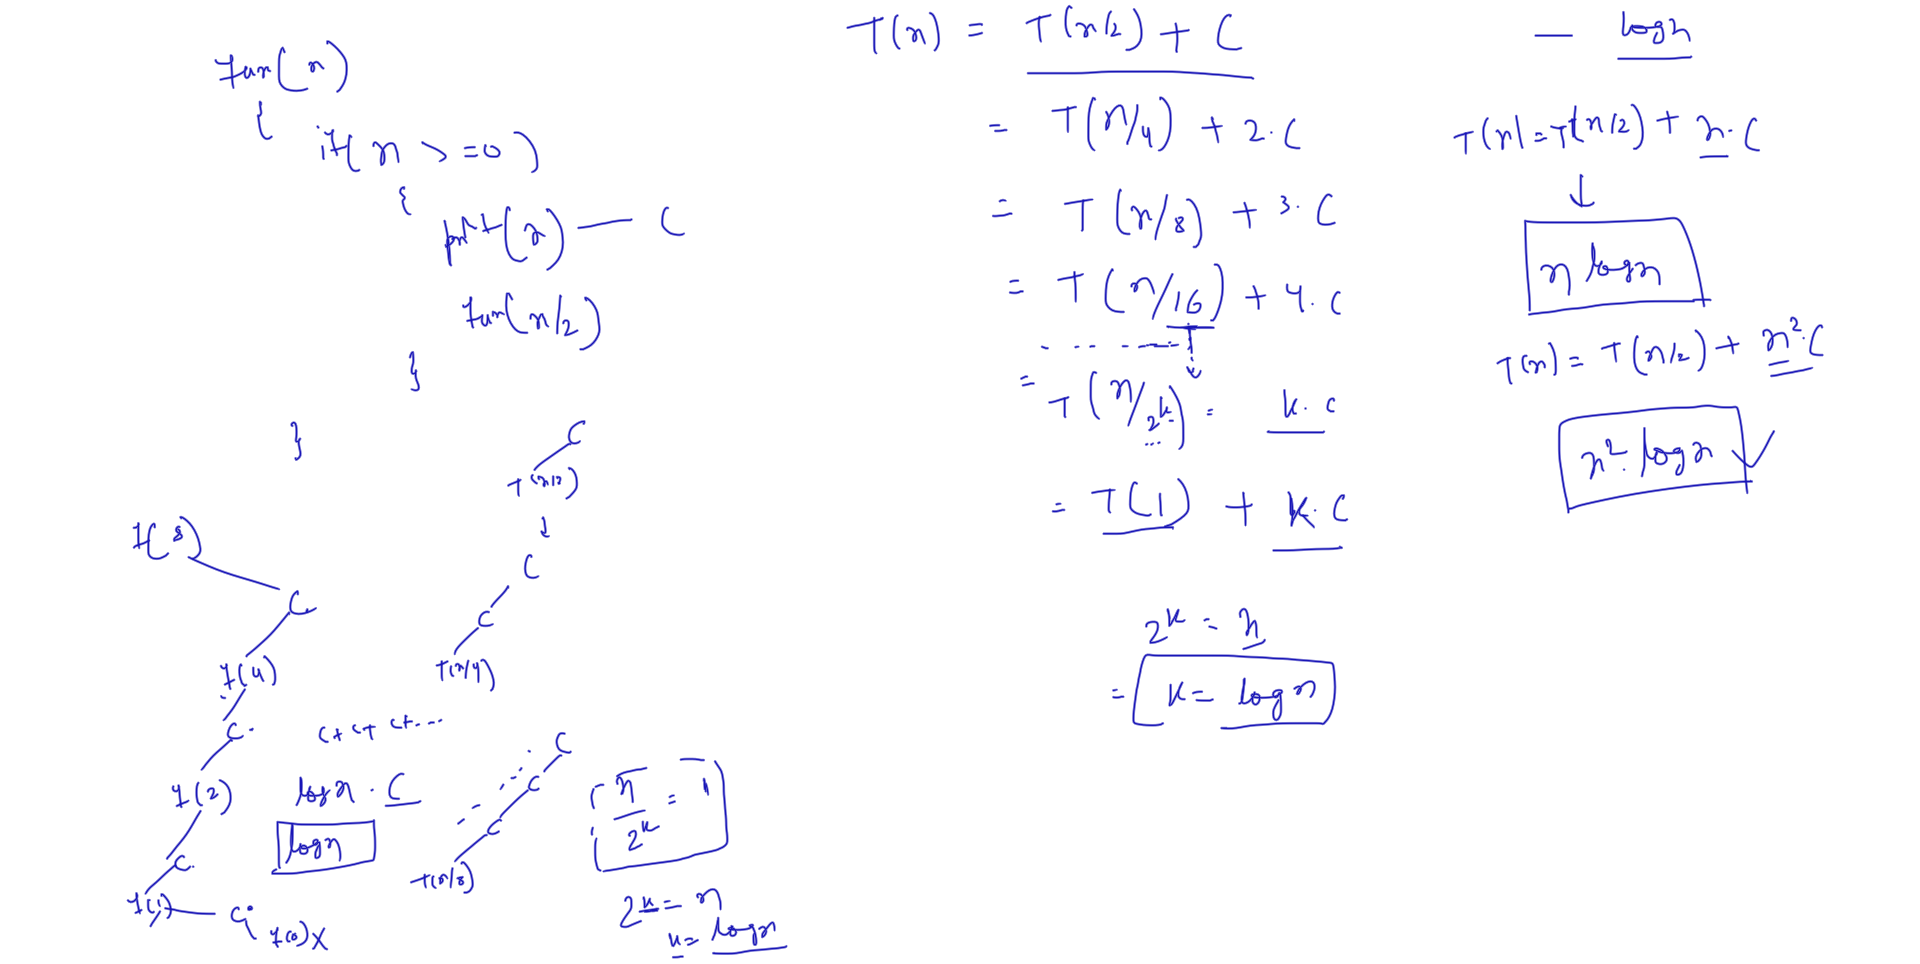 fun(n)
{
if(n >=0)
{
print(2) — C
fun(n/2)
}
}
C
T(n/2)
↓
C
C
T(n/4)
f(8)
C
f(4)
C
f(2)
C
f(1) — C
f(0) X
C+ C+ C+...
logn . C
logn
C
C
C
T(n/8)
n/2^k = 1
2^k = n
k = logn
T(n) = T(n/2) + C
= T(n/4) + 2.C
= T(n/8) + 3.C
= T(n/16) + 4.C
= T(n/2^k) = k.c
= T(1) + k.C
2^k = n
= k = logn
— logn
T(n) = T(n/2) + n.C
↓
n logn
T(n) = T(n/2) + n².C
n². logn ✓